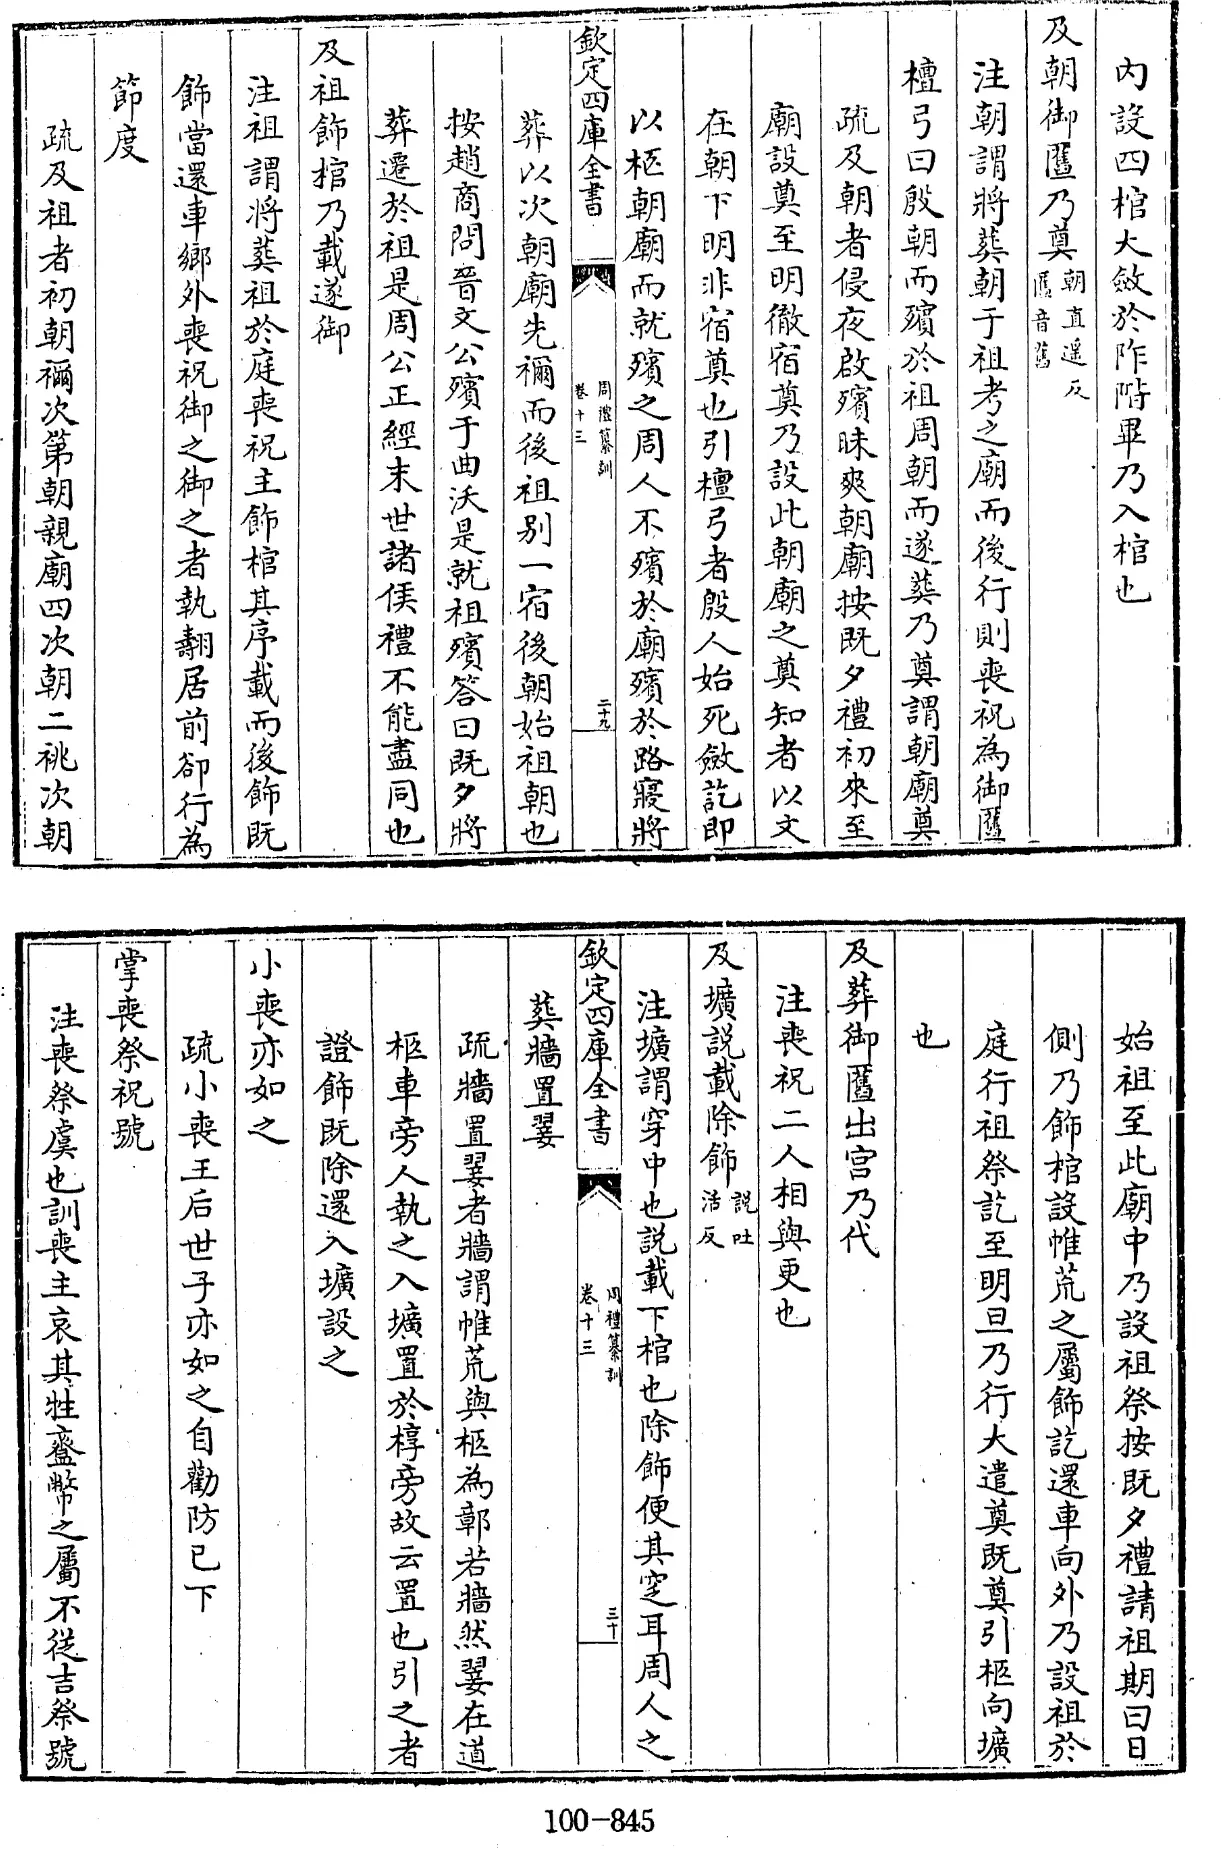 内設四棺大斂於阼階畢乃入棺也
及朝御匶乃奠朝直遥反匶音舊
注朝謂將葬朝于祖考之廟而後行則喪祝為御匶
檀弓曰殷朝而殯於祖周朝而遂葬乃奠謂朝廟奠
疏及朝者侵夜啟殯昧爽朝廟按既夕禮初來至
廟設奠至明徹宿奠乃設此朝廟之奠知者以文
在朝下明非宿奠也引檀弓者殷人始死斂訖即
以柩朝廟而就殯之周人不殯於廟殯於路寢將
欽定四庫全書
周禮纂訓
卷十三
二十九
葬以次朝廟先禰而後祖别一宿後朝始祖朝也
按趙商問晉文公殯于曲沃是就祖殯答曰既夕將
葬遷於祖是周公正經末世諸侯禮不能盡同也
及祖飾棺乃載遂御
注祖謂將葬祖於庭喪祝主飾棺其序載而後飾既
飾當還車鄉外喪祝御之御之者執翿居前卻行為
節度
疏及祖者初朝禰次第朝親廟四次朝二祧次朝
始祖至此廟中乃設祖祭按既夕禮請祖期曰日
側乃飾棺設帷荒之屬飾訖還車向外乃設祖於
庭行祖祭訖至明旦乃行大遣奠既奠引柩向壙
也
及葬御匶出宫乃代
注喪祝二人相與更也
及壙説載除飾説吐活反
注壙謂穿中也説載下棺也除飾便其窆耳周人之
欽定四庫全書
周禮纂訓
卷十三
三十
葬牆置翣
疏牆置翣者牆謂帷荒與柩為鄣若牆然翣在道
柩車旁人執之入壙置於椁旁故云置也引之者
證飾既除還入壙設之
小喪亦如之
疏小喪王后世子亦如之自勸防已下
掌喪祭祝號
注喪祭虞也訓喪主哀其牲齍幣之屬不從吉祭號
100-845